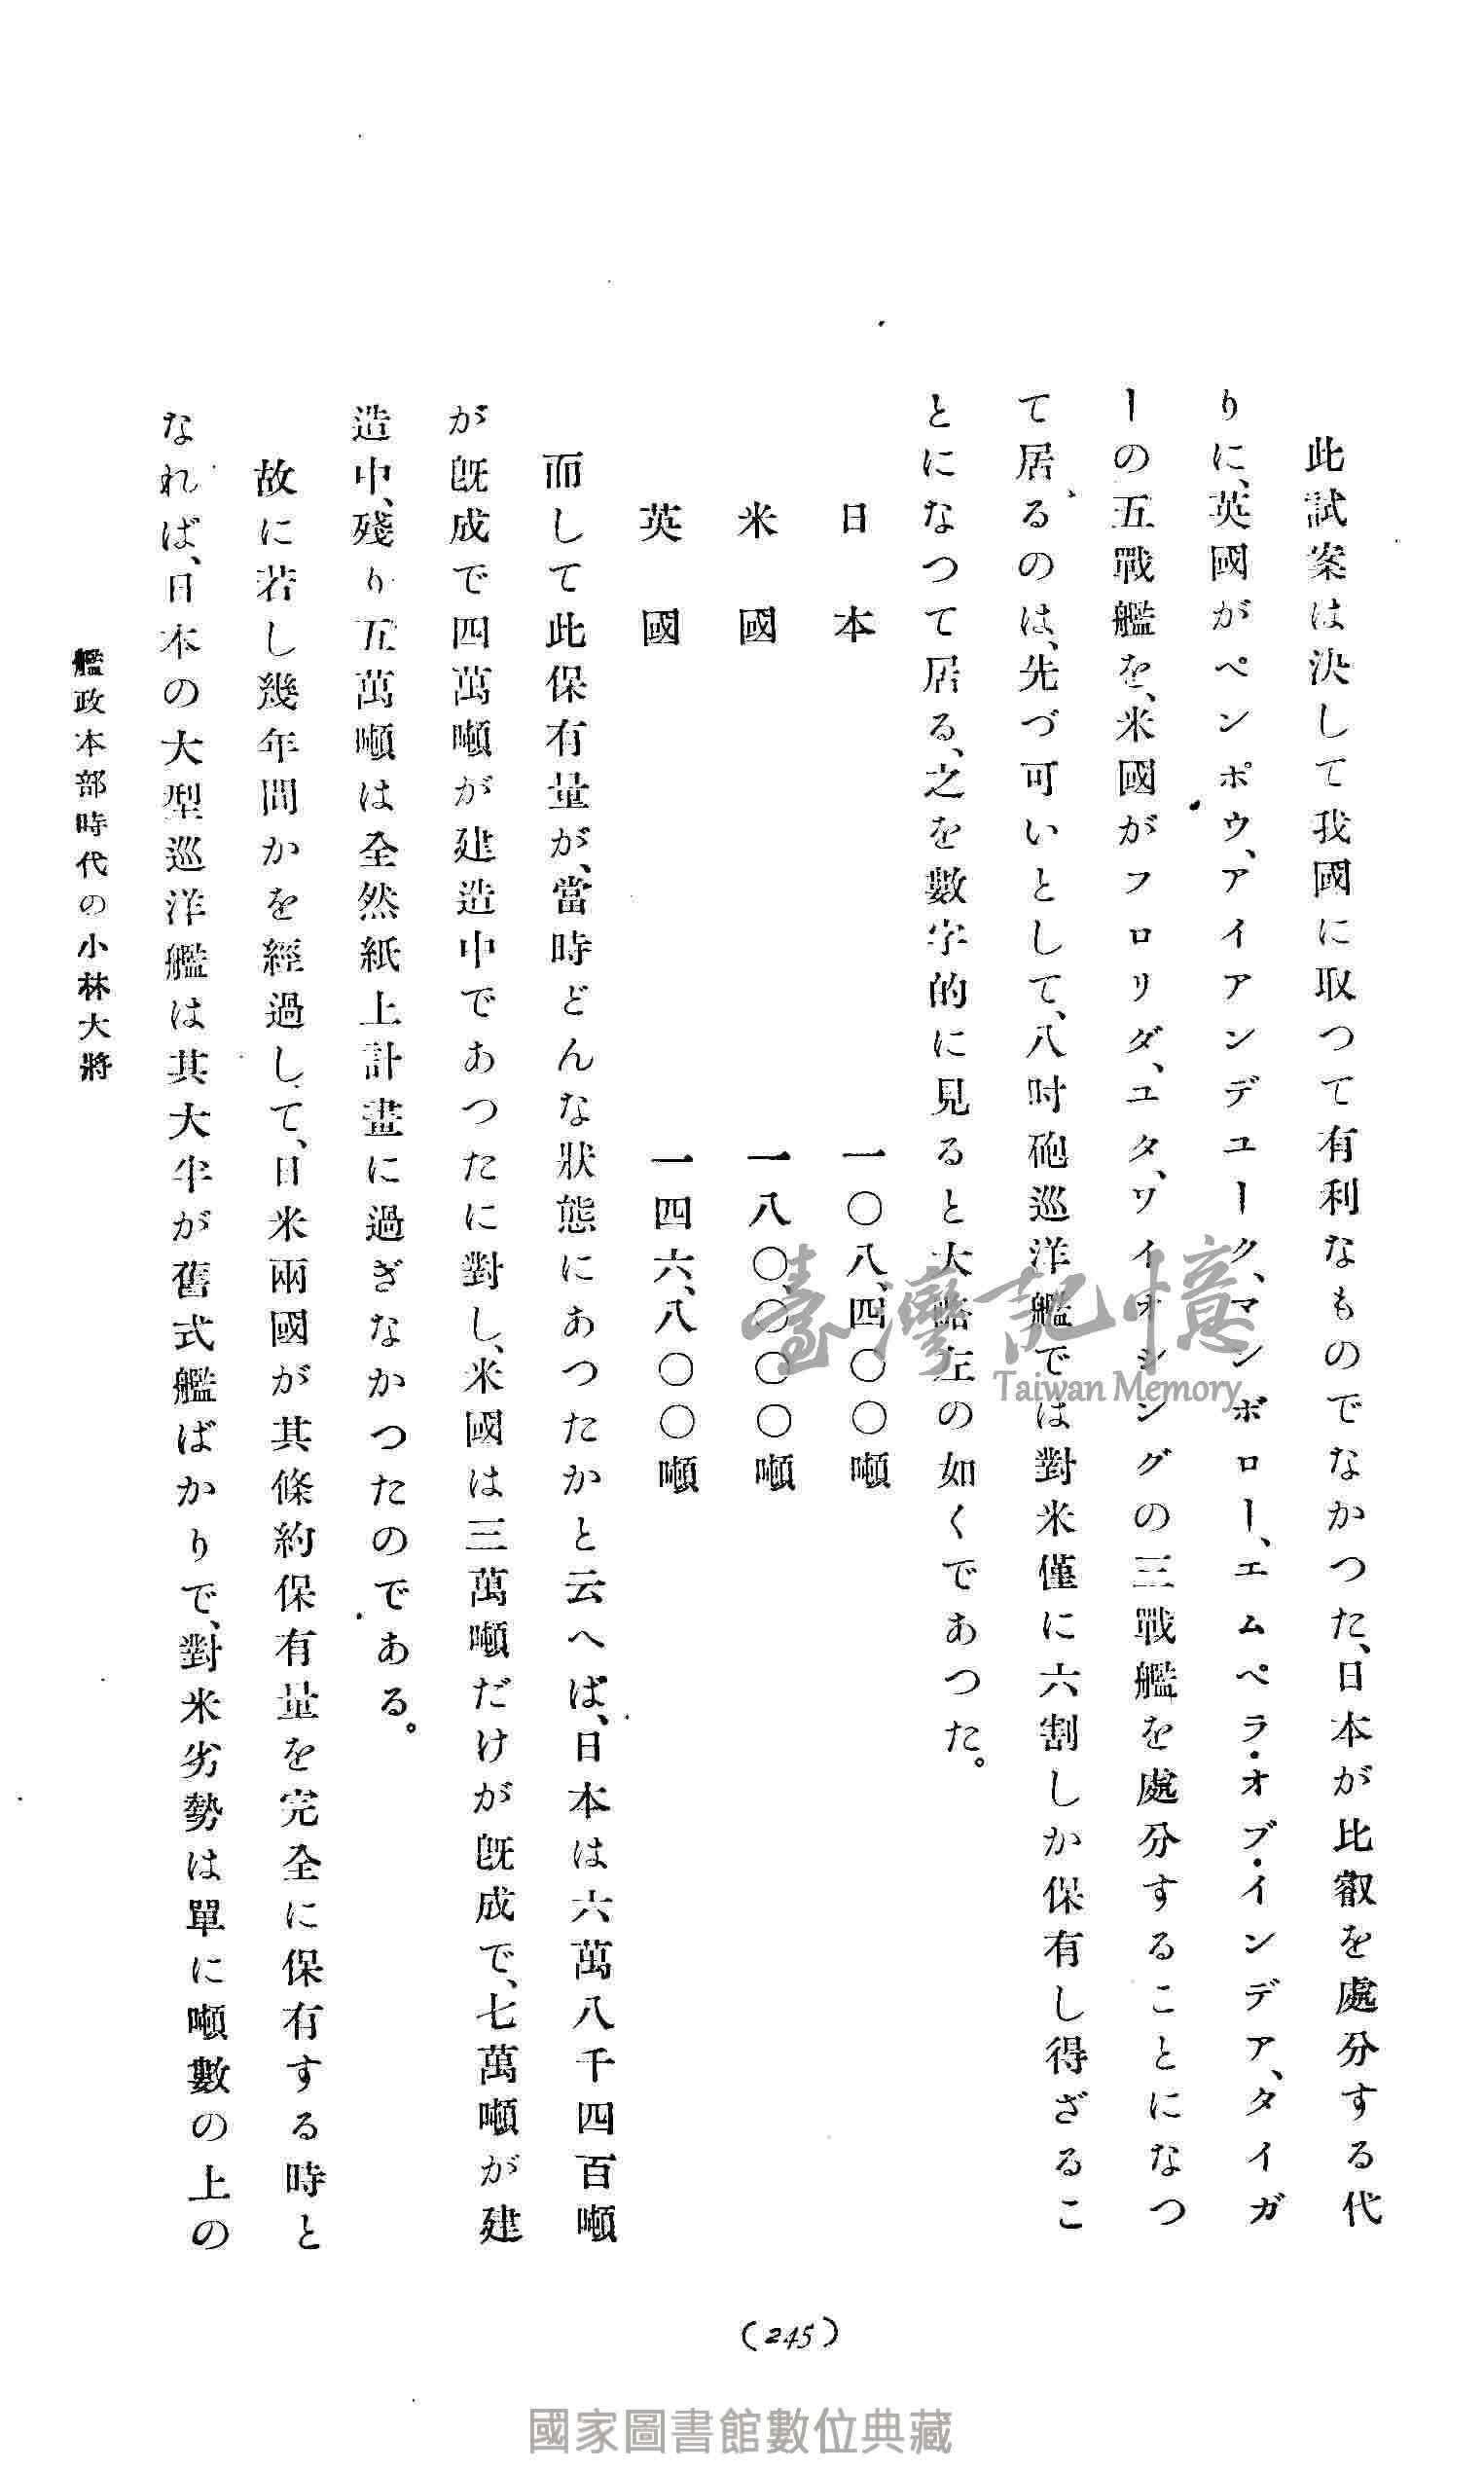 此試案は決して我國に取つて有利なものでなかつた、日本が比叡を處分する代
りに、英國がペンポウ、アイアンデユーク、マンボロー、エムペラ・オブ・インデア、タイガ
ーの五戰艦を、米國がフロリダ、ユタ、ワイオシングの三戰艦を處分することになつ
て居るのは、先づ可いとして、八吋砲巡洋艦では對米僅に六割しか保有し得ざるこ
とになつて居る、之を數字的に見ると大略左の如くであつた。
日本 一〇八、四〇〇噸
米國 一八〇、〇〇〇噸
英國 一四六、八〇〇噸
而して此保有量が、當時どんな狀態にあつたかと云へば、日本は六萬八千四百噸
が既成で四萬噸が建造中であつたに對し、米國は三萬噸だけが既成で、七萬噸が建
造中、殘り五萬噸は全然紙上計畫に過ぎなかつたのである。
故に若し幾年間かを經過して、日米兩國が其條約保有量を完全に保有する時と
なれば、日本の大型巡洋艦は其大半が舊式艦ばかりで、對米劣勢は單に噸數の上の
艦政本部時代の小林大將
(245)
臺灣記憶
Taiwan Memory
國家圖書館數位典藏